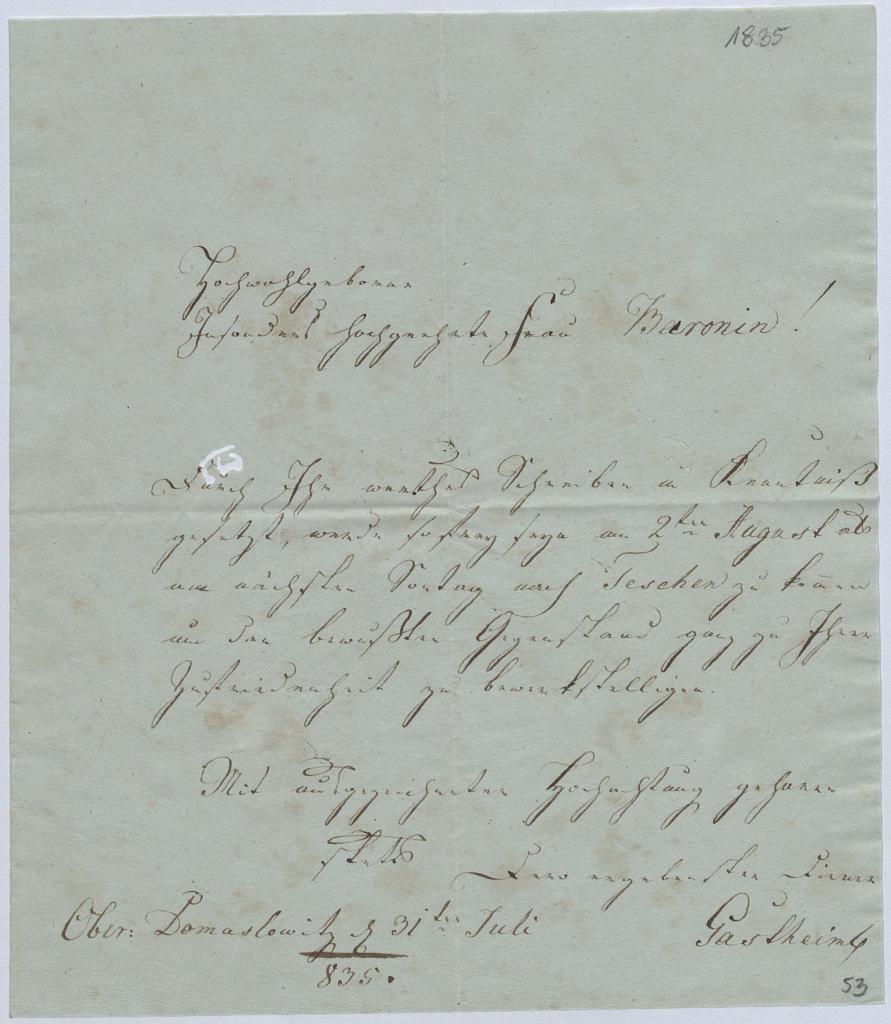 1835
Hochwohlgeborne
Insonders hochgeehrte Frau Baronin!
Durch Ihr werthes Schreiben in Kenntniß
gesetzt, werde so frey seyn am 2ten August als
am nächsten Sontag nach Teschen zu kom̄en
um den bewußten Gegenstand ganz zu Ihrer
Zufriedenheit zu bewerkstelligen.
Mit ausgezeichneter Hochachtung geharre
stets
Dero ergebenster Diener
Ober: Domaslowitz d 31ten Juli
835.
Gastheimb
53